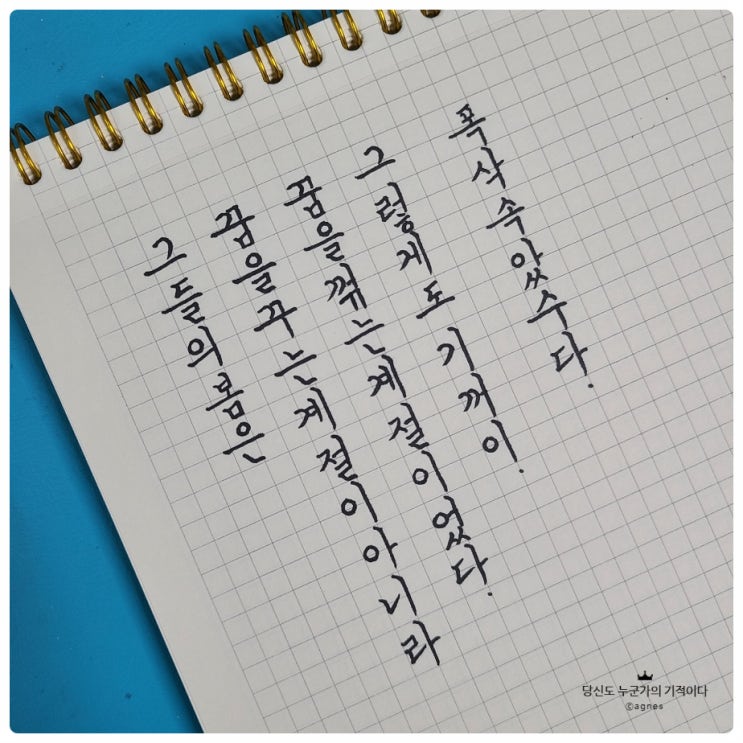 그들의 봄은
꿈을 꾸는 계절이 아니라
꿈을 꺾는 계절이었다.
그렇게도 기꺼이.
폭삭 속았수다.
당신도 누군가의 기적이다
©agnes